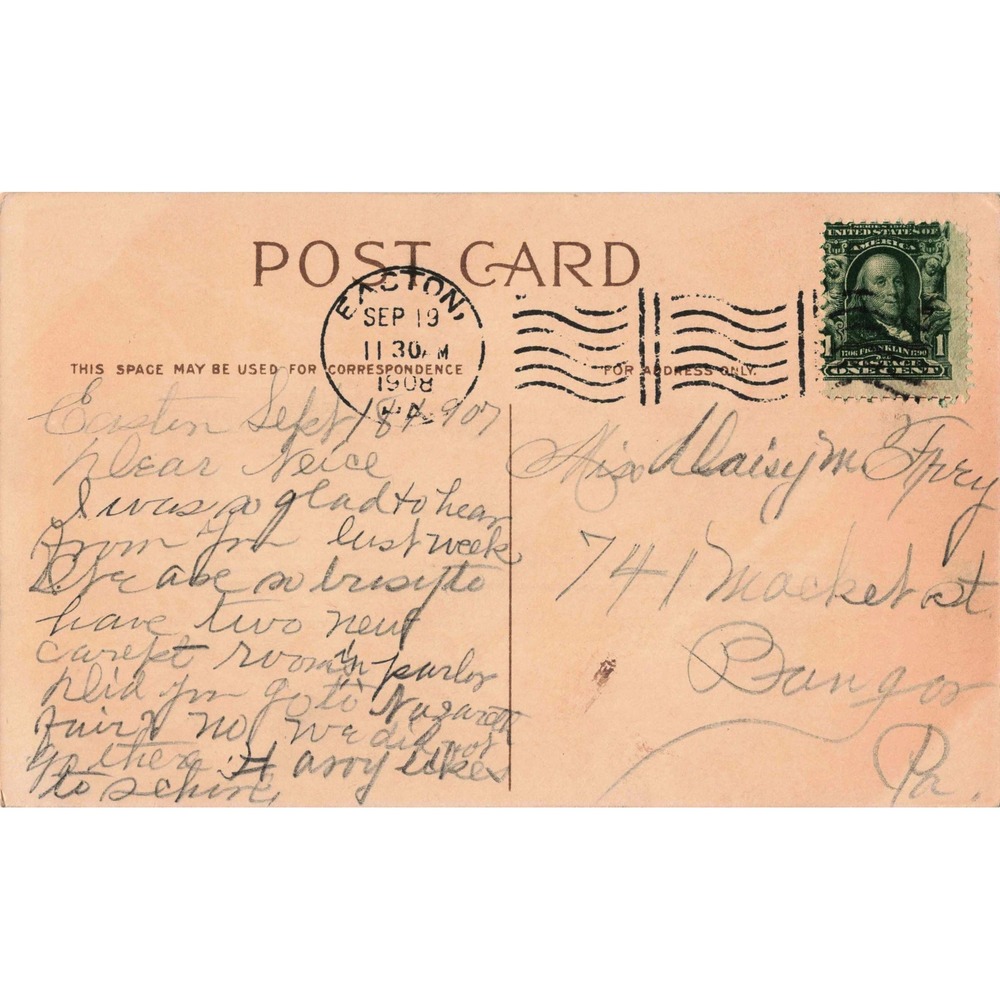 POST CARD
SERIES 1902
UNITED STATES OF
AMERICA
1706 FRANKLIN 1790
POSTAGE
1 ONE CENT 1
EASTON,
SEP 19
11 30 AM
1908
PA.
THIS SPACE MAY BE USED FOR CORRESPONDENCE
FOR ADDRESS ONLY.
Easton Sept 18 / 907
Dear Neice
I was so glad to hear
from you last week
We are so busy to
have two new
carept room in parlor
Did you go to Nazareth
Fair no we did not
go there Harry likes
to
Miss Daisy M Frey
741 Macket st
Bangor
Pa.